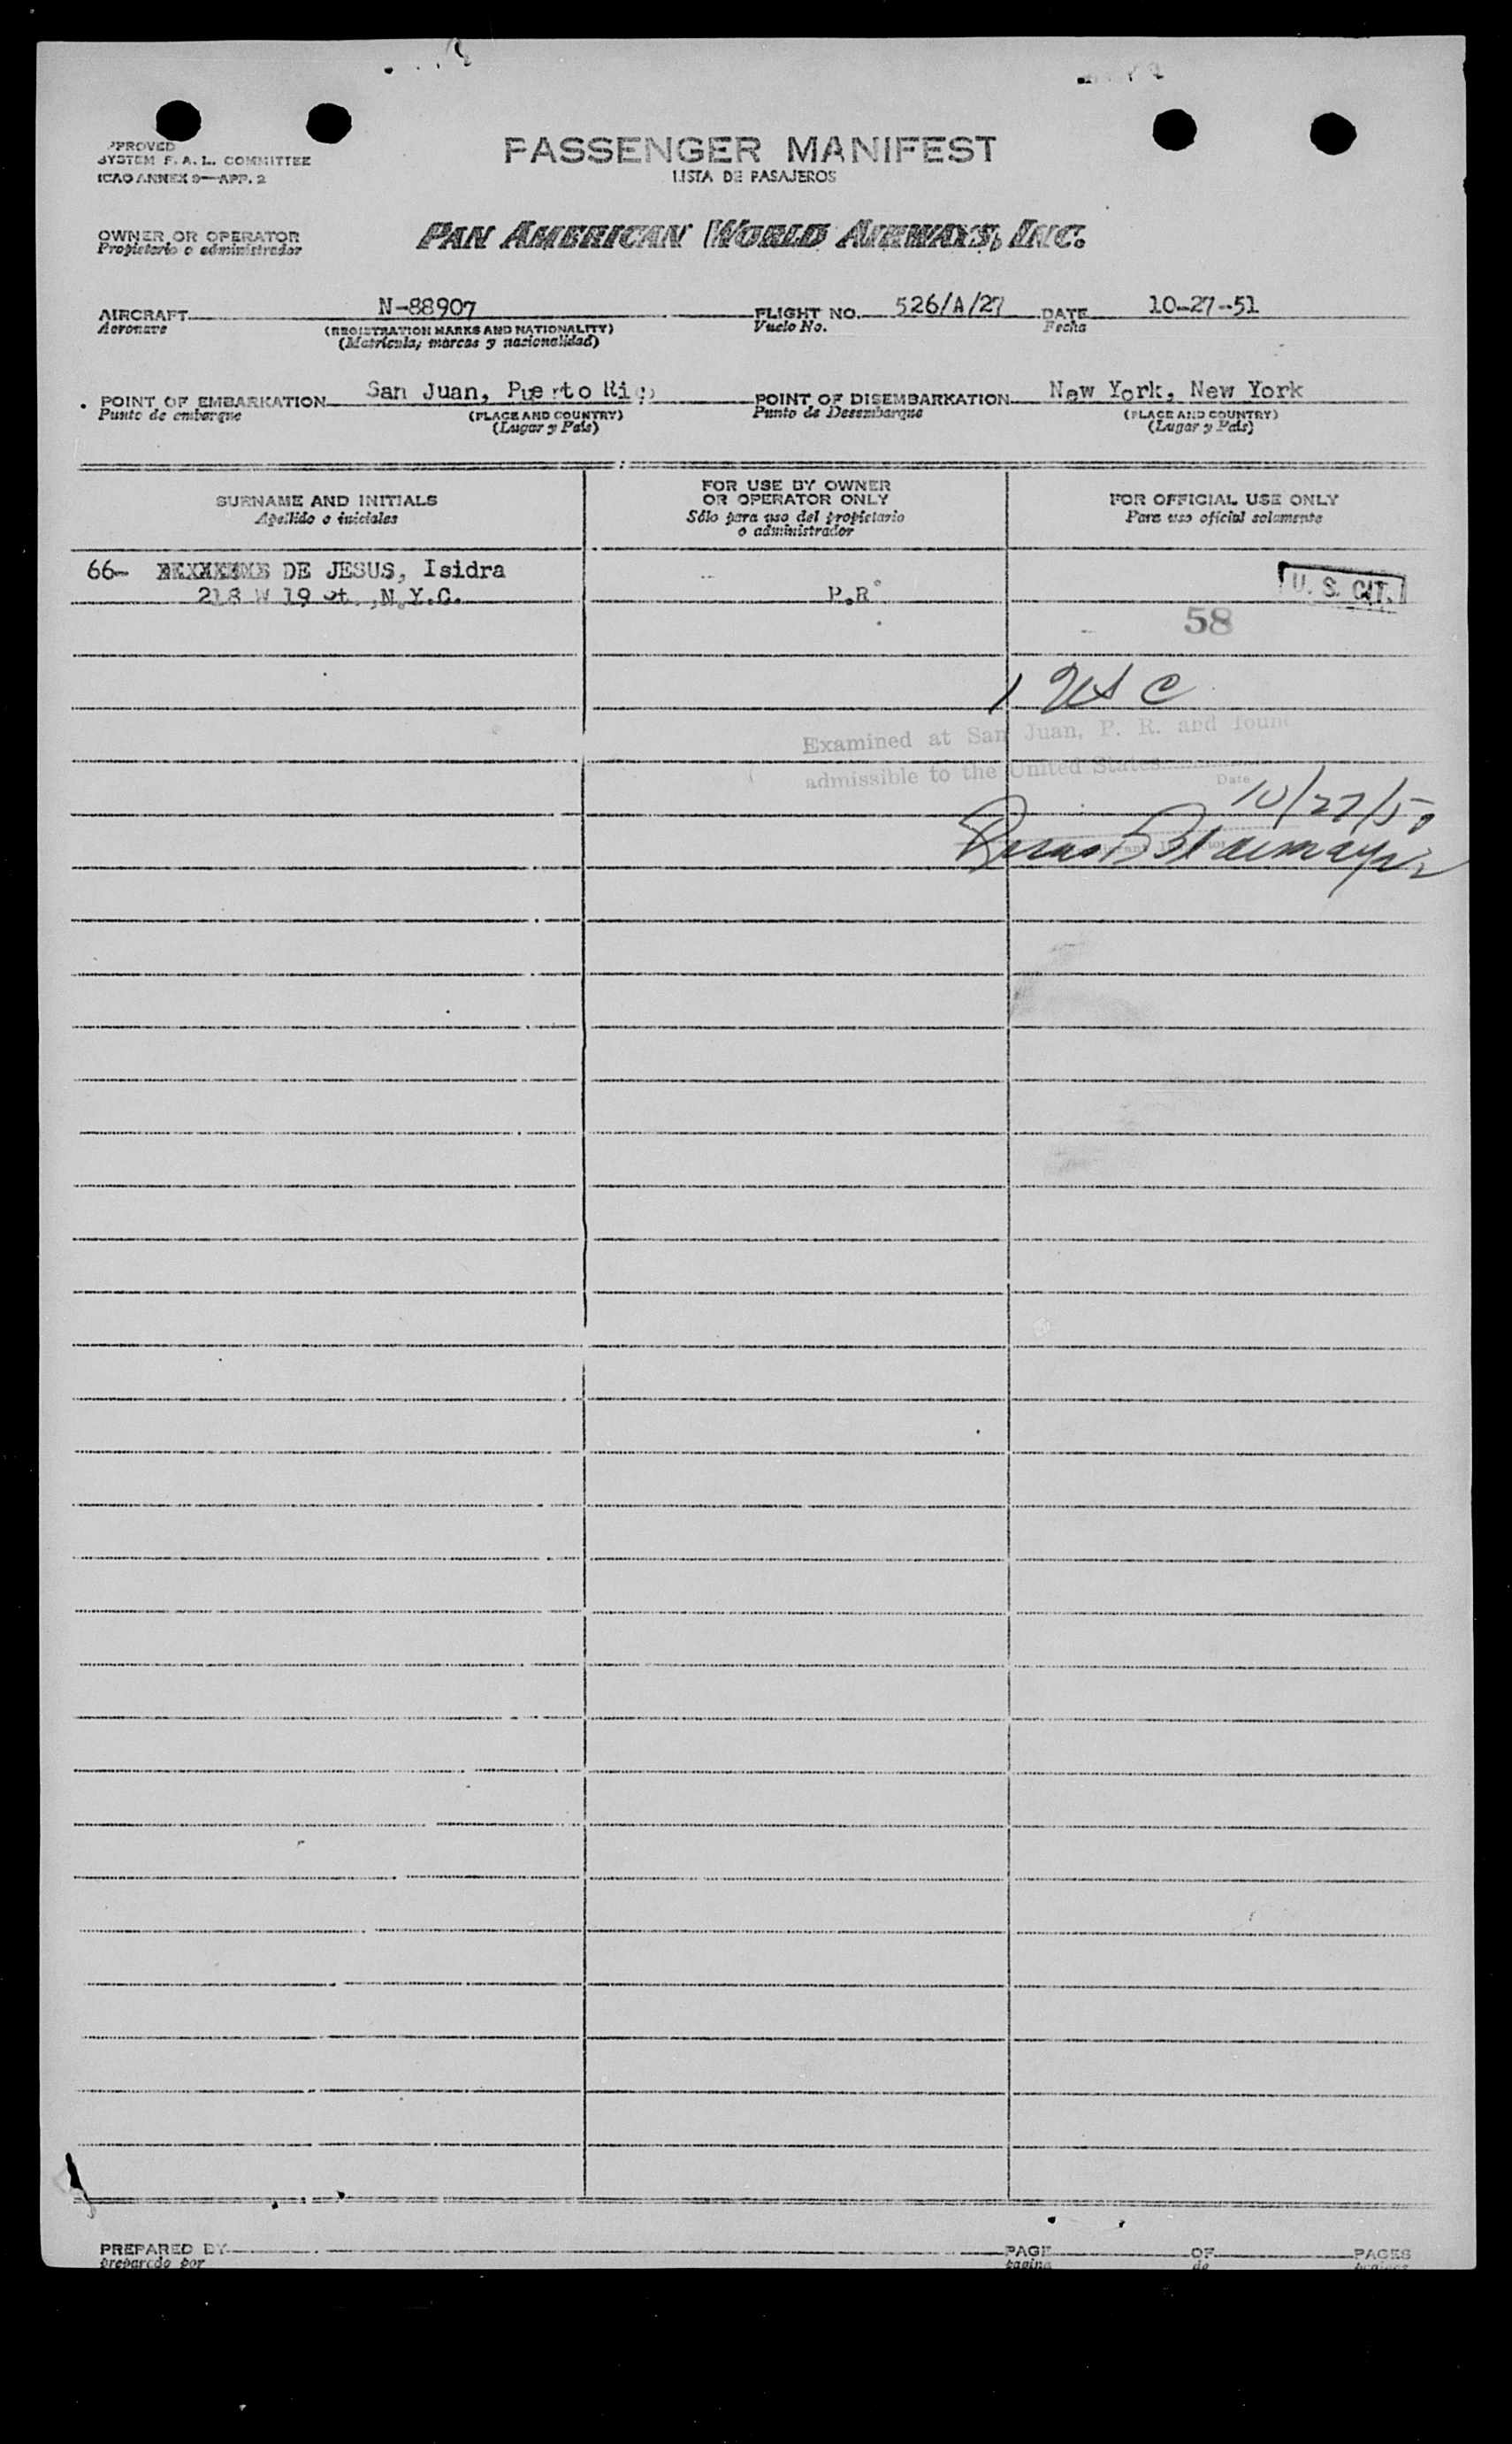 APPROVED
SYSTEM F. A. L. COMMITTEE
ICAO ANNEX 9—APP. 2
PASSENGER MANIFEST
LISTA DE PASAJEROS
OWNER OR OPERATOR
Propietario o administrador
PAN AMERICAN WORLD AIRWAYS, INC.
AIRCRAFT N-88907 FLIGHT NO. 526/A/27 DATE 10-27-51
Aeronave (REGISTRATION MARKS AND NATIONALITY) Vuelo No. Fecha
(Matrícula, marcas y nacionalidad)
POINT OF EMBARKATION San Juan, Puerto Rico POINT OF DISEMBARKATION New York, New York
Punto de embarque (PLACE AND COUNTRY) Punto de Desembarque (PLACE AND COUNTRY)
(Lugar y País) (Lugar y País)
SURNAME AND INITIALS
Apellido o iniciales
FOR USE BY OWNER
OR OPERATOR ONLY
Sólo para uso del propietario
o administrador
FOR OFFICIAL USE ONLY
Para uso oficial solamente
66- DE JESUS, Isidra
218 W 19 St., N.Y.C. P.R. U. S. CIT.
58
1 USC
Examined at San Juan, P. R. and found
admissible to the United States
Date
10/27/51
PREPARED BY PAGE OF PAGES
preparado por pagina de paginas